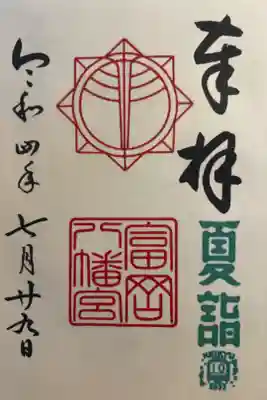 奉拝
夏詣
富岡
八幡宮
令和四年七月廿九日